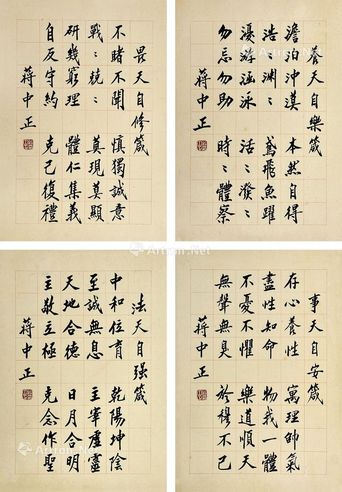 養天自樂箴
澹泊沖漠 本然自得
浩:淵: 鳶飛魚躍
優游涵泳 活:潑:
勿忘勿助 時:體察
蔣中正
畏天自修箴
不睹不聞 慎獨誠意
戰:兢: 莫現莫顯
研幾窮理 體仁集義
自反守約 克己復禮
蔣中正
事天自安箴
存心養性 寓理帥氣
盡性知命 物我一體
不憂不懼 樂道順天
無聲無臭 於穆不已
蔣中正
法天自强箴
中和位育 乾陽坤陰
至誠無息 主宰虛靈
天地合德 日月合明
主敬立極 克念作聖
蔣中正